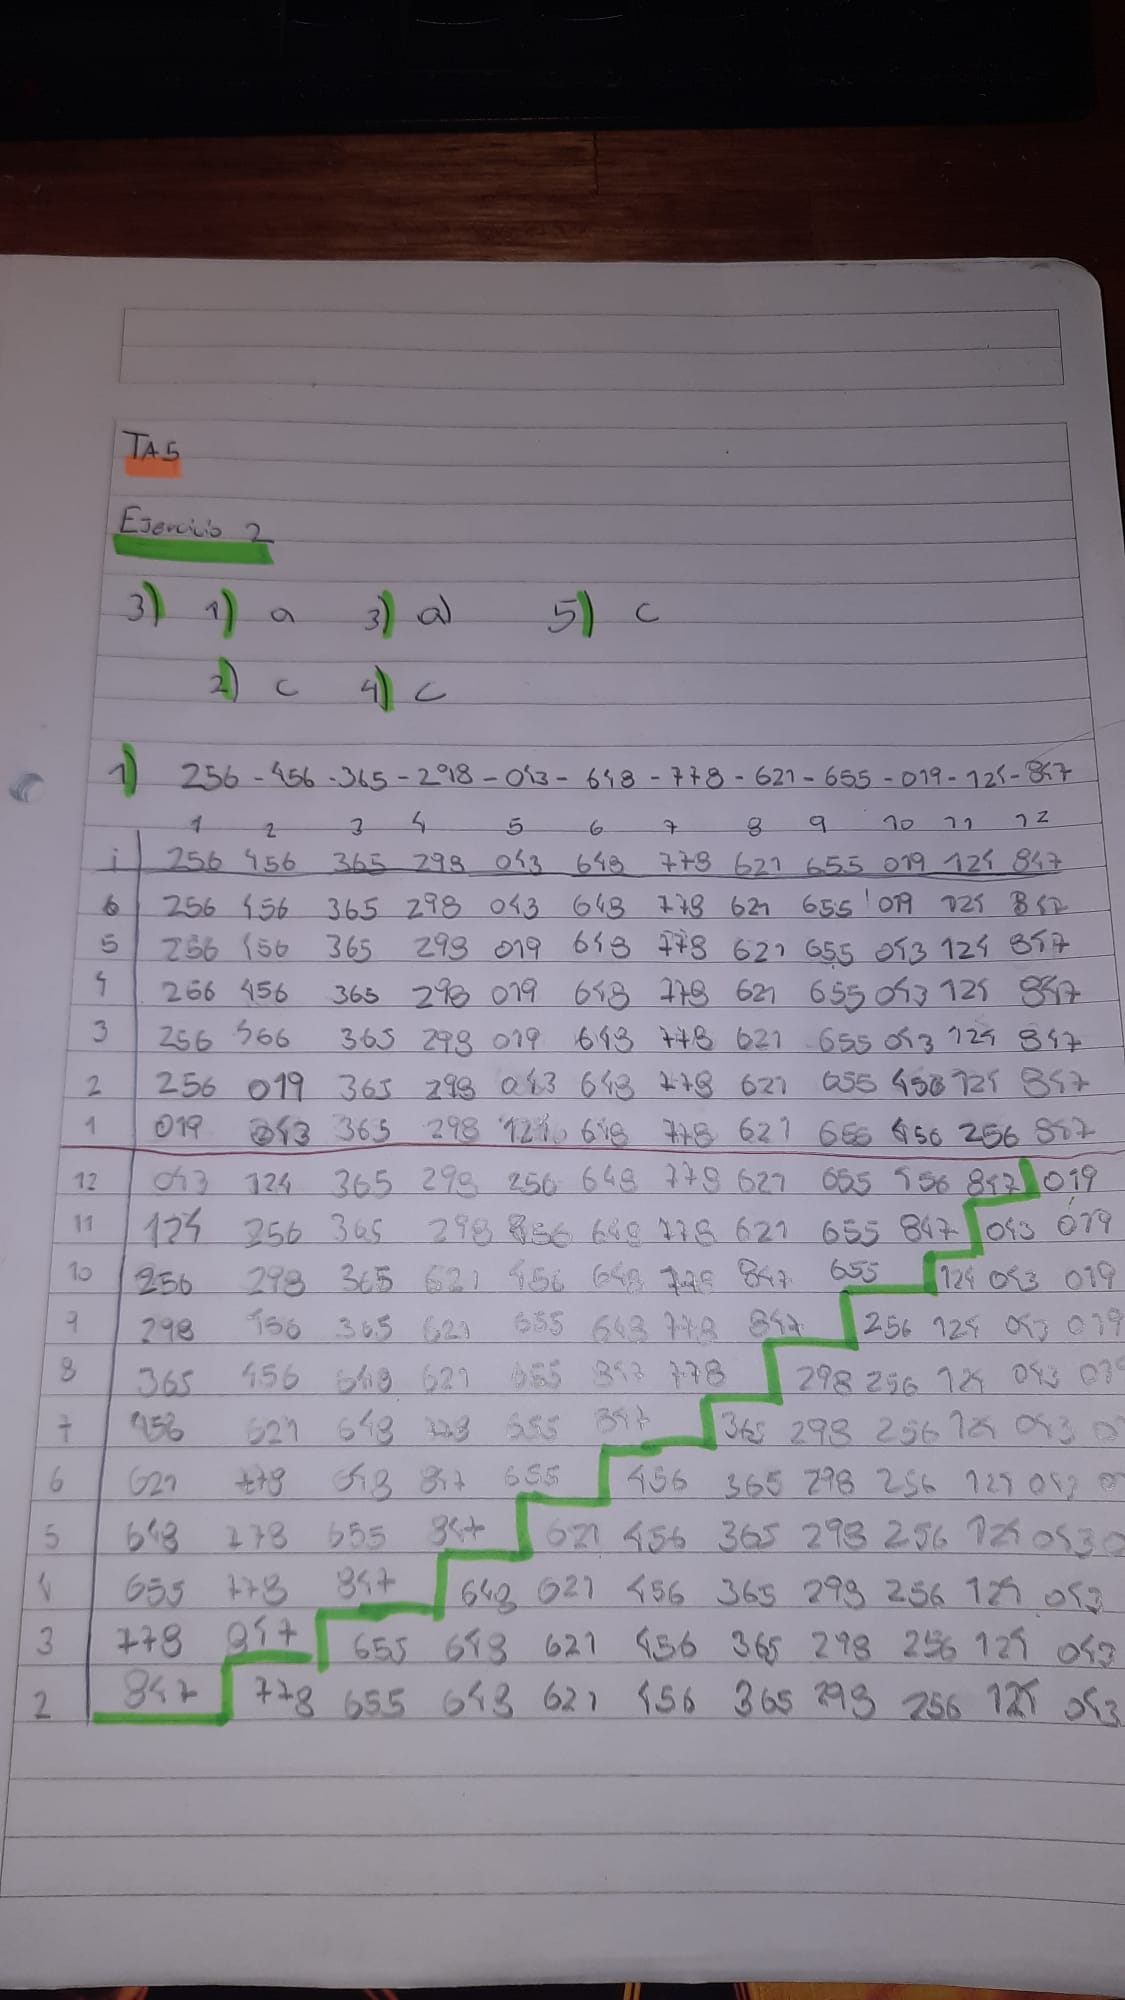 TA5
Ejercicio 2
3) 1) a 3) a) 5) c
2) c 4) c
1) 256 - 456 - 365 - 298 - 043 - 648 - 778 - 621 - 655 - 019 - 124 - 847
1 2 3 4 5 6 7 8 9 10 11 12
i 256 456 365 298 043 648 778 621 655 019 124 847
6 256 456 365 298 043 648 778 621 655 019 124 847
5 256 456 365 298 019 648 778 621 655 043 124 847
4 256 456 365 298 019 648 778 621 655 043 124 847
3 256 365 298 019 648 778 621 655 043 124 847
2 256 019 365 298 043 648 778 621 655 456 124 847
1 019 043 365 298 124 648 778 621 655 456 256 847
12 043 124 365 298 256 648 778 621 655 456 847 019
11 124 256 365 298 456 648 778 621 655 847 043 019
10 256 298 365 621 456 648 778 847 655 124 043 019
9 298 456 365 621 655 648 778 847 256 124 043 019
8 365 456 648 621 655 847 778 298 256 124 043
7 456 621 648 778 655 847 365 298 256 124 043
6 621 778 648 847 655 456 365 298 256 124 043
5 648 778 655 847 621 456 365 298 256 124 043
4 655 778 847 648 621 456 365 298 256 124 043
3 778 847 655 648 621 456 365 298 256 124 043
2 847 778 655 648 621 456 365 298 256 124 043